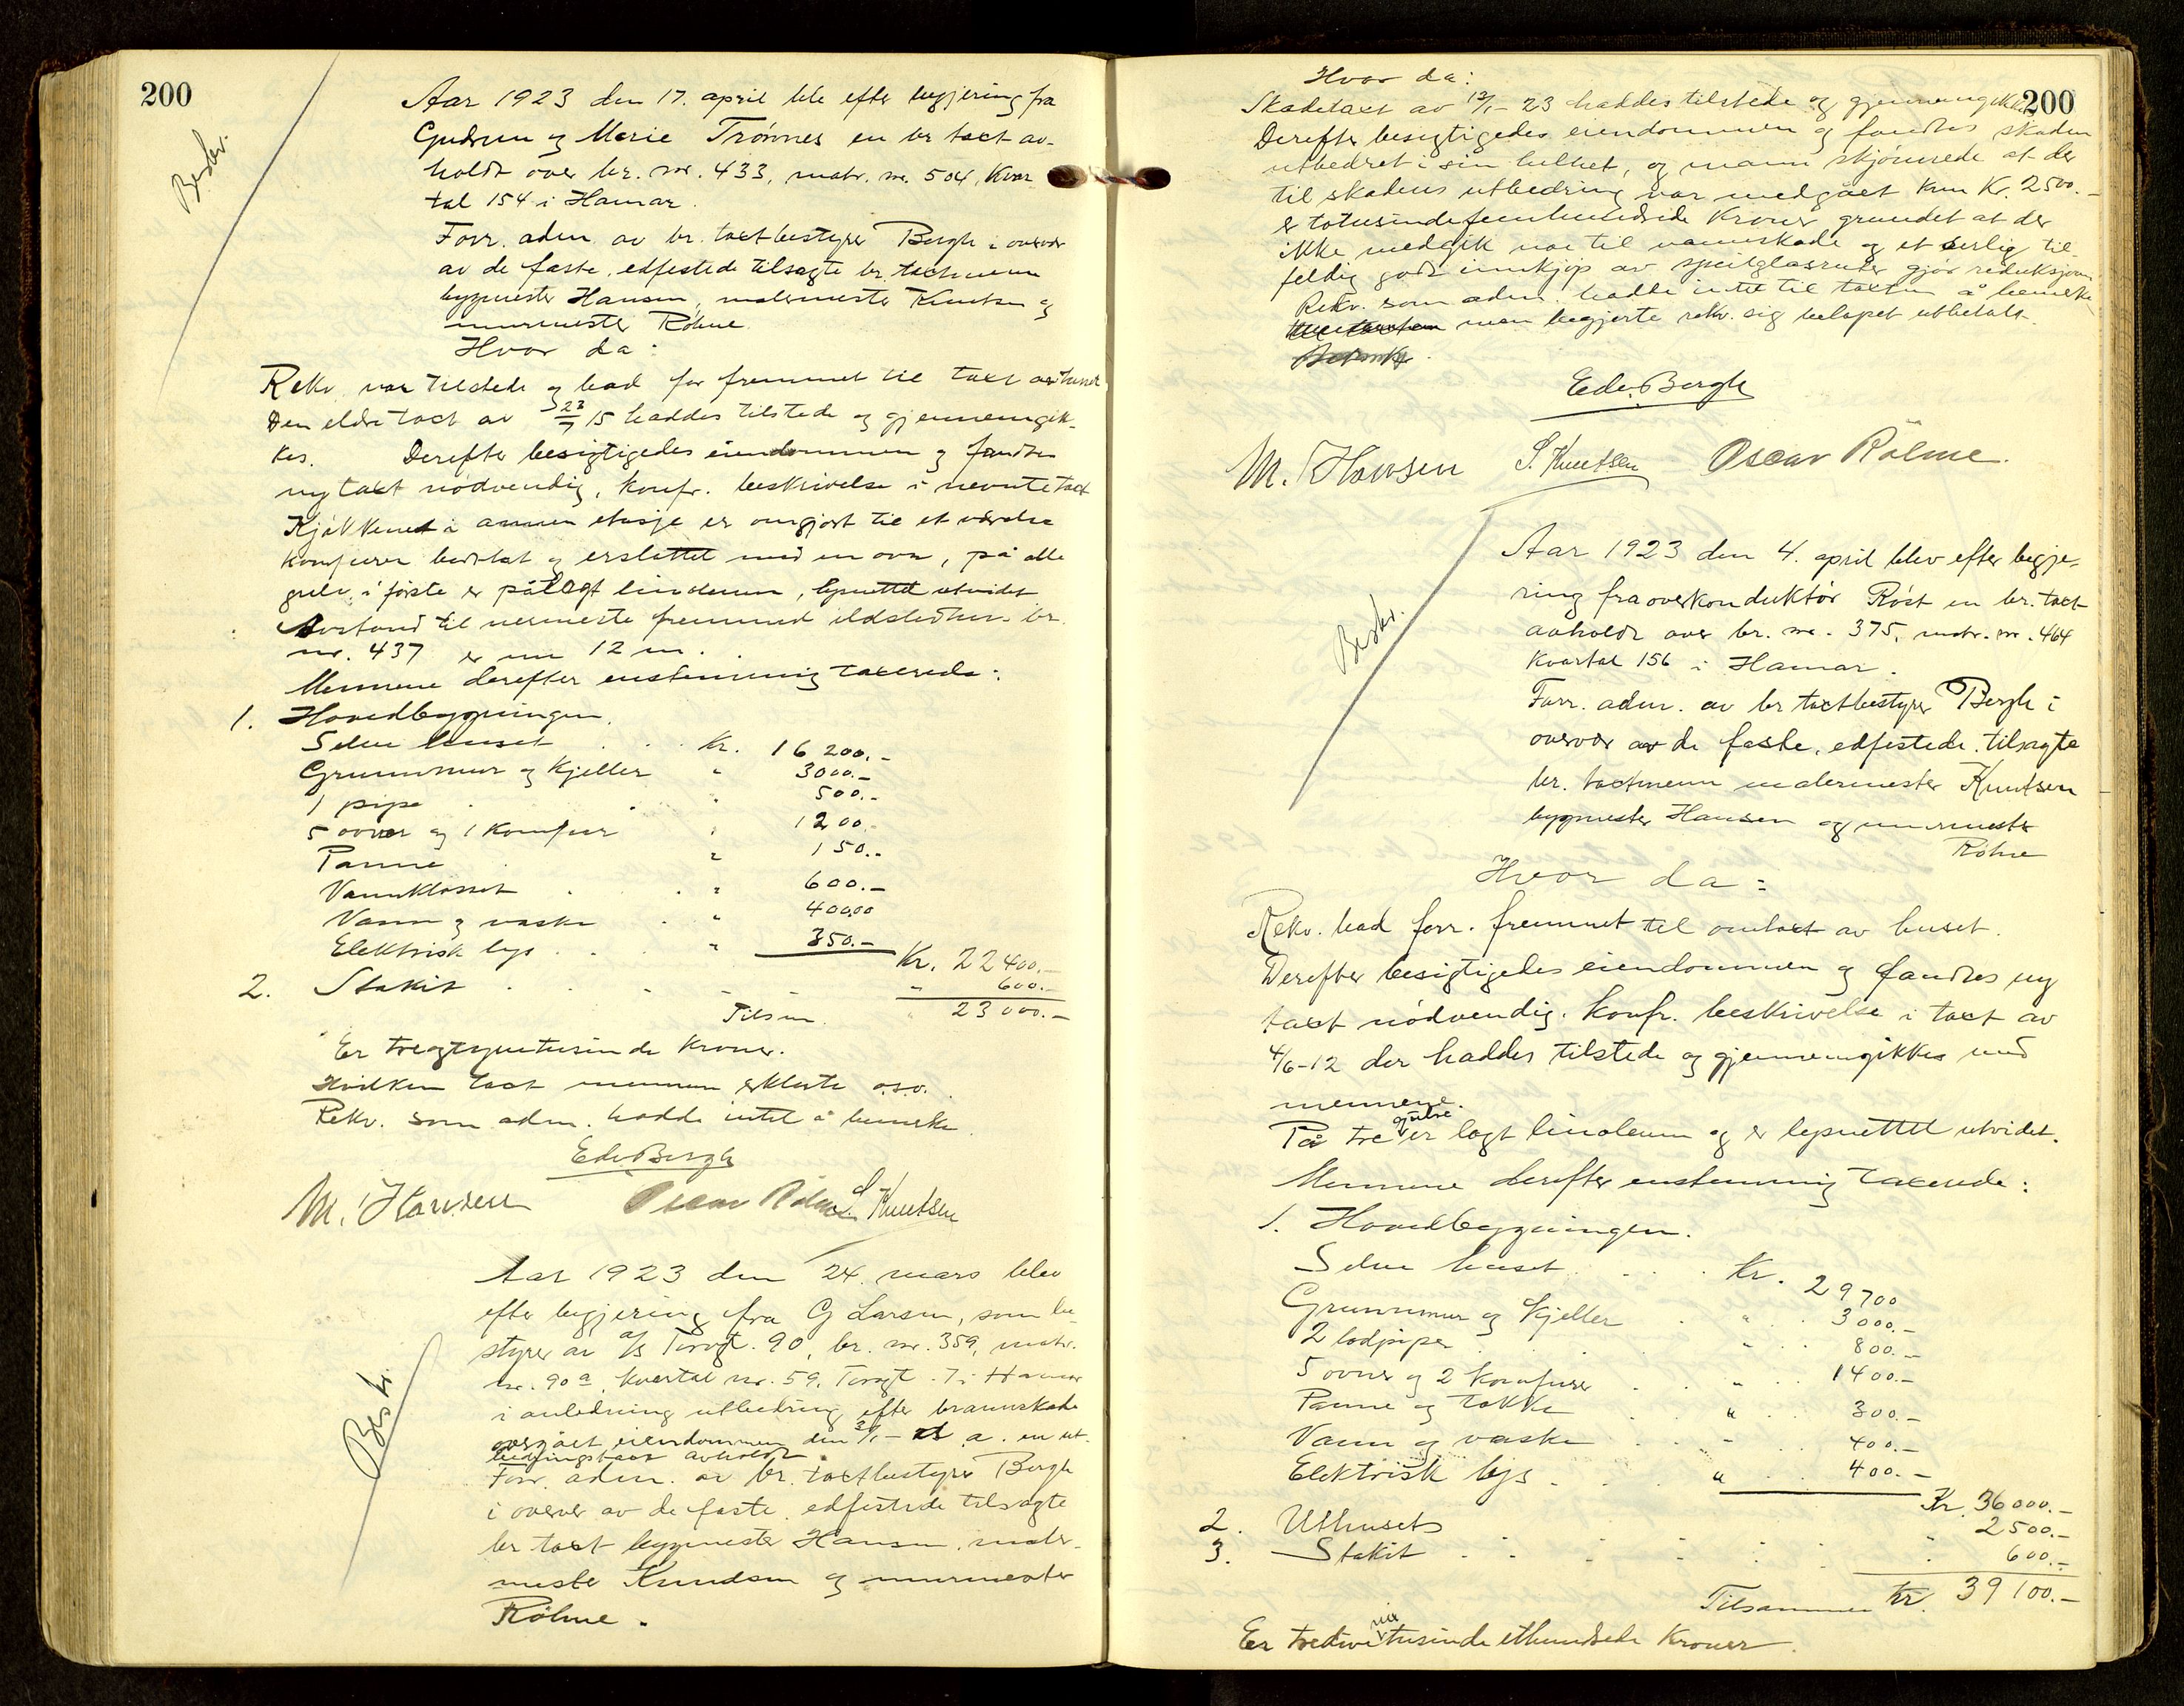 200
Beskr.
Aar 1923 den 17. april ble efter begjering fra
Gudrun og Marie Trønnes en br taxt av-
holdt over br. nr. 433, matr. nr. 504, Kvar
tal 154 i Hamar.
Forr. adm. av br. taxtbestyrer Bergh i overvær
av de faste, edfestede tilsagte br. taxtmenn
bygmester Hansen, malermester Knutsen og
murmester Röhne.
Hvor da:
Rekv. var tilstede og bad forr fremmet til taxt av huset
Den eldre taxt av 23/7 15 haddes tilstede og gjennemgik-
kes. Derefter besigtigedes eiendommen og fandtes
ny taxt nödvendig, konfr. beskrivelse i nevnte taxt
Kjökkenet i annen etasje er omgjort til et værelse
komfuren borttat og erstattet med en ovn, på alle
gulv i förste er pålagt linoleum, lysnettet utvidet
Avstand til nermeste fremmed ildstedhus br.
nr. 437 er nu 12 m.
Mennene derefter enstemmig taxerede:
1. Hovedbygningen.
Selve huset . . Kr. 16 200.-
Grunnmur og Kjeller " 3000.-
1 pipe . . " 500.-
5 ovner og 1 Komfur " 1200.
Panne . " 150.-
Vannklosset . . " 600.-
Vann og vaske . " 400.00
Elektrisk lys . . " 350.-
Kr. 22 400.-
2. Stakit . - - - " 600.-
Tilsm. " 23 000.-
Er treogtyvetusinde Kroner.
Hvilken taxt mennene erklærte o.s.v.
Rekv. som adm. hadde intet å bemerke.
Edv. Bergh
M. Hansen Oscar Röhne S. Knutsen
Beskr.
Aar 1923 den 24. mars blev
efter begjering fra G Larsen, som be-
styrer av A/S Torvgt. 90, br. nr. 359, matr.
nr. 90 a, kvartal nr. 59, Torvgt. 7 i Hamar
i anledning utbedring efter brannskade
overgået eiendommen den 3/1 - d. a. en ut-
bedringstaxt avholdt.
Forr. adm. av br. taxtbestyrer Bergh
i overvær av de faste, edfestede tilsagte
br taxt bygmester Hansen, maler-
mester Knudsen og murmester
Röhne.
200
Hvor da:
Skadetaxt av 12/1 - 23 haddes tilstede og gjennemgikkes
Derefter besigtigedes eiendommen og fandtes skaden
utbedret i sin helhet, og mann skjønnede at der
til skadens utbedring var medgået kun Kr. 2500.-
er totusindefemhundrede Kroner grundet at der
ikke medgik noe til vannskade og et særlig til-
feldig godt innkjøp av speilglassruter gjør reduksjon
Rekv. som adm. hadde intet til taxten å bemerke
men begjerte rekv. sig belöpet utbetalt.
Edv. Bergh
M. Hansen S. Knutsen Oscar Röhne.
Beskr.
Aar 1923 den 4. april blev efter begje-
ring fra overkonduktör Röst en br. taxt
avholdt over br. nr. 375, matr. nr. 464
Kvartal 156 i Hamar.
Forr. adm. av br taxtbestyrer Bergh i
overvær av de faste, edfestede, tilsagte
br. taxtmenn malermester Knutsen
bygmester Hansen og murmester
Röhne
Hvor da:
Rekv. bad forr. fremmet til omtaxt av huset.
Derefter besigtigedes eiendommen og fandtes ny
taxt nödvendig. Konfr. beskrivelse i taxt av
4/6-12 der haddes tilstede og gjennemgikkes med
mennene.
På tre gulve er lagt linoleum og er lysnettet utvidet.
Mennene derefter enstemmig taxerede:
1. Hovedbygningen.
Selve huset . . . Kr. 29 700
Grunnmur og Kjeller . " . . 3000.-
2 lodpiper . . " . . 800.-
5 ovner og 2 Komfurer . . " . . 1400.-
Panne og takke . . " . . 300.-
Vann og vaske . . " . . 400.-
Elektrisk lys . . " . . 400.-
Kr. 36 000.-
2. Uthuset " 2500.-
3. Stakit . - - - . . . 600.-
Tilsammen Kr. 39 100.-
Er tredive ni tusinde ethundrede Kroner.